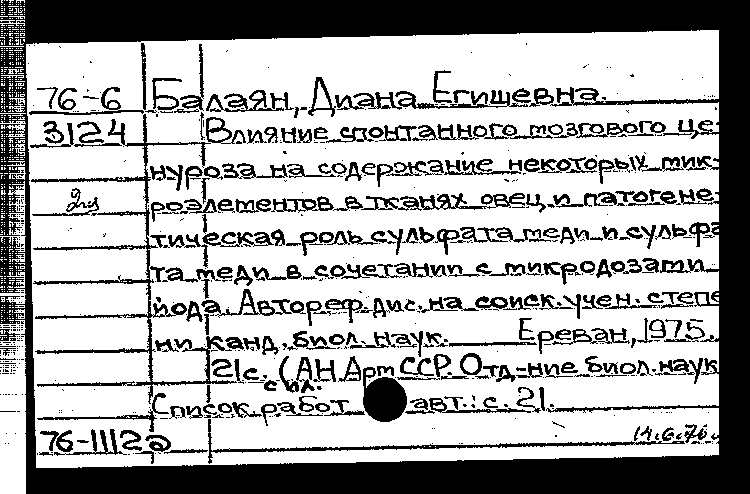 76-6 Балаян, Диана Егишевна.
3124 Влияние спонтанного мозгового це-
нуроза на содержание некоторых мик-
роэлементов в тканях овец и патогене-
тическая роль сульфата меди и сульфа
та меди в сочетании с микродозами
йода. Автореф. дис. на соиск. учен. степе
ни канд. биол. наук. Ереван, 1975.
21с. (АН Арм ССР. Отд-ние биол. наук
с ил.
Список работ авт.: с. 21.
76-11122 14.6.76.